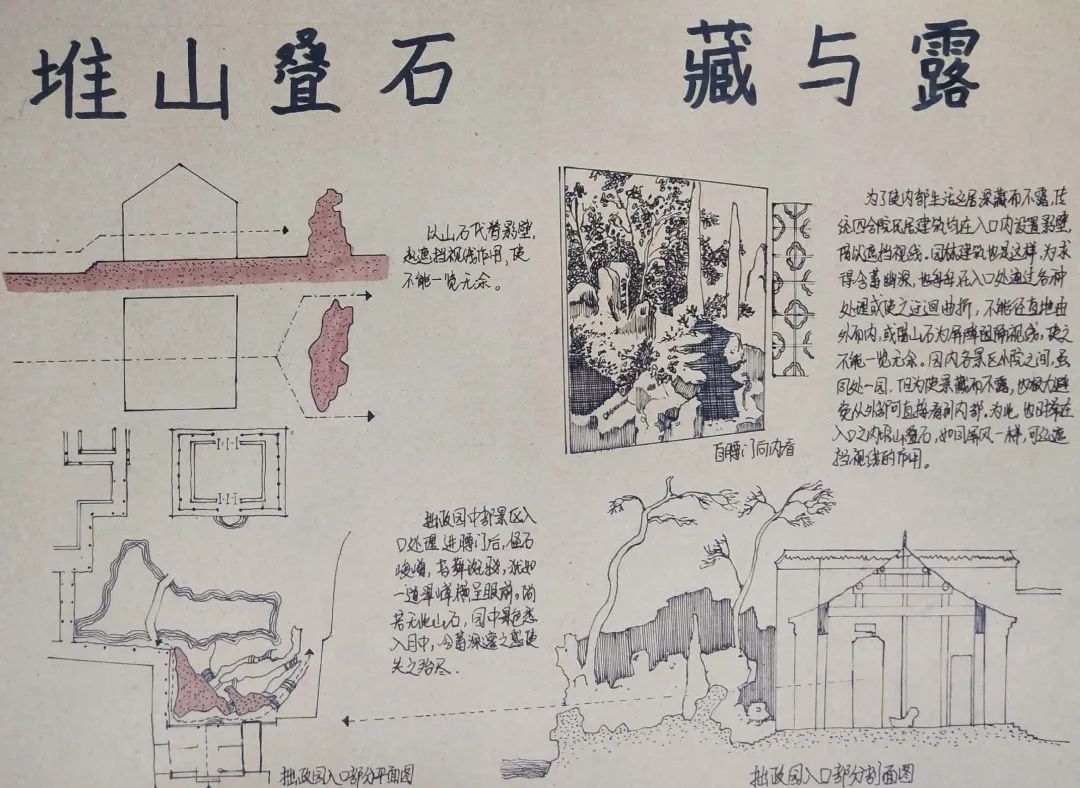 堆山叠石
藏与露
以山石代替影壁,
起遮挡视线作用,使
不能一览无余。
为了使内部生活起居深藏而不露,传
统四合院民居建筑均在入口内设置影壁,
借以遮挡视线。园林建筑也是这样,为求
得含蓄幽深,也每每在入口处通过各种
处理或使之迂迴曲折,不能径直地由
外而内,或借山石为屏障阻隔视线,使之
不能一览无余。园内各景区小院之间,虽
同处一园,但为使景藏而不露,也极力避
免从外部可直接看到内部,为此,也时常在
入口之内堆山叠石,如同屏风一样,可起遮
挡视线的作用。
自腰门向内看
拙政园中部景区入
口处理,进腰门后,怪石
嶙峋,
一道翠嶂横呈眼前。倘
若无此山石,园中景色悉
入目中,含蓄深邃之感便
失之殆尽.
拙政园入口部分平面图
拙政园入口部分剖面图